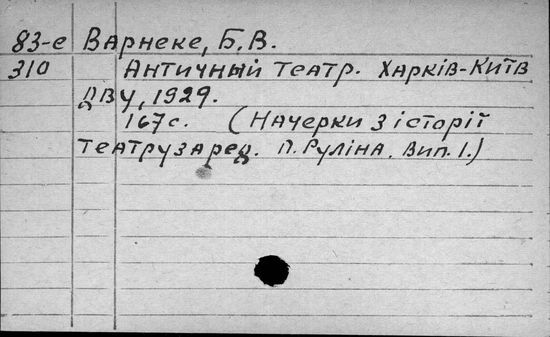 83-е Варнеке, Б.В.
310 Античный театр. Харків-Київ
ДВУ, 1929.
167с. (Начерки з історії
театру за ред. П. Руліна. Вип. 1.)